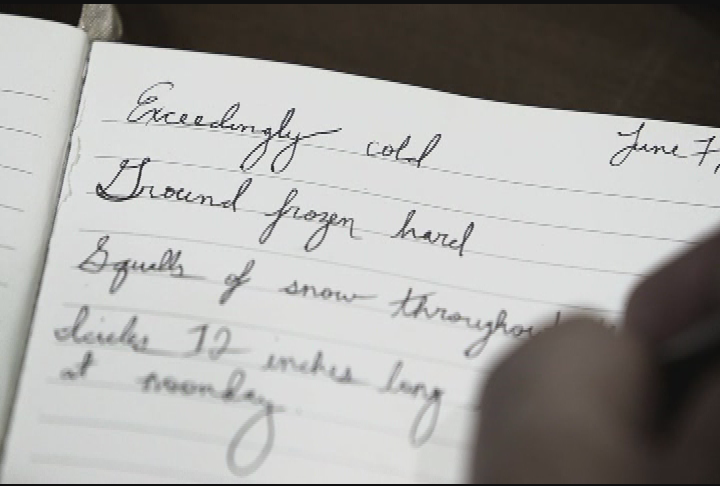 Exceedingly cold June 7,
Ground frozen hard
Squalls of snow throughou
Icicles 12 inches long
at noonday